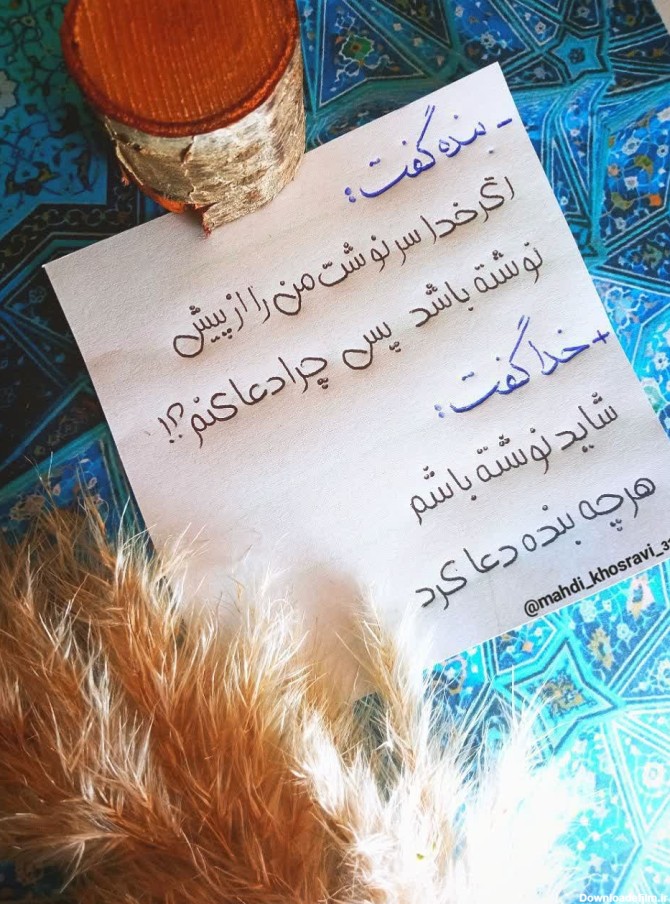 - بنده گفت:
اگر خدا سرنوشت من را از پیش
نوشته باشد پس چرا دعا کنم؟!
+ خدا گفت:
شاید نوشته باشم
هرچه بنده دعا کرد
@mahdi_khosravi_3